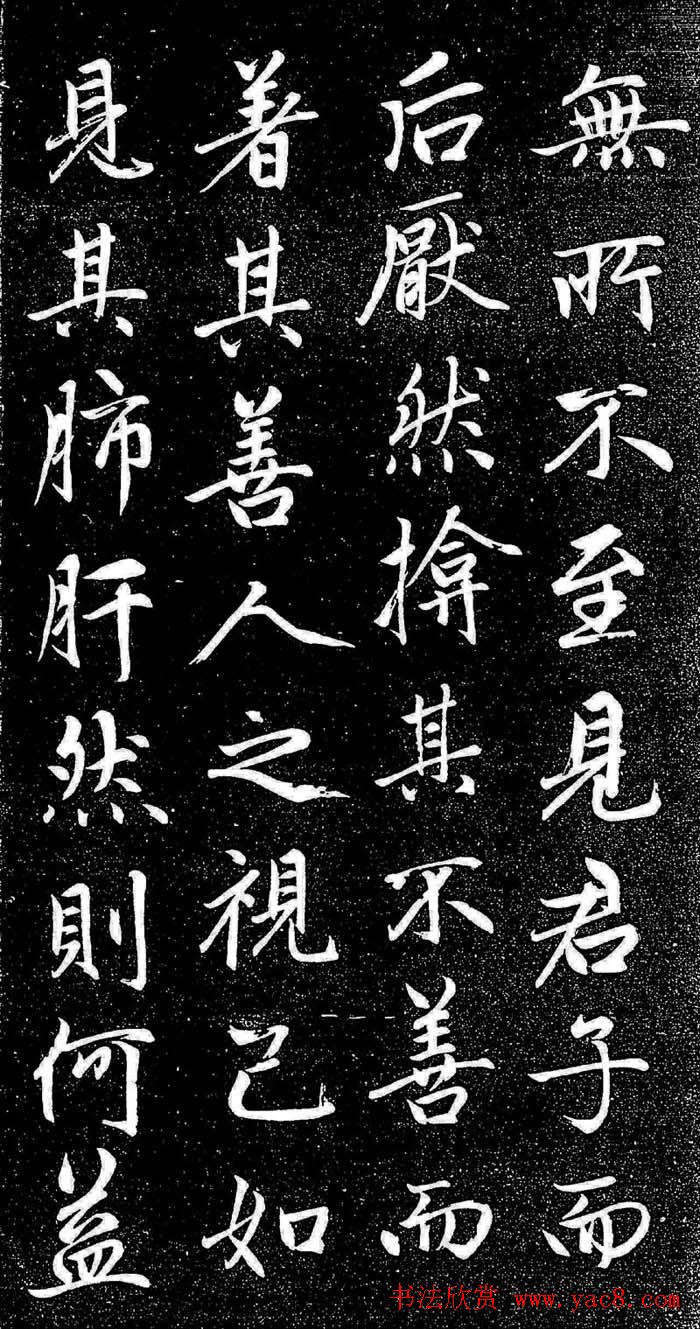 無所不至見君子而
后厭然揜其不善而
著其善人之視己如
見其肺肝然則何益
书法欣赏 www.yac8.com